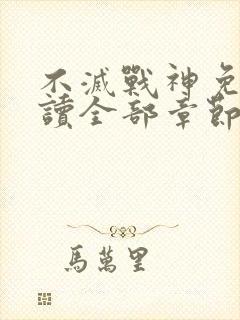 不滅戰神免
讀全部章節
馬萬里